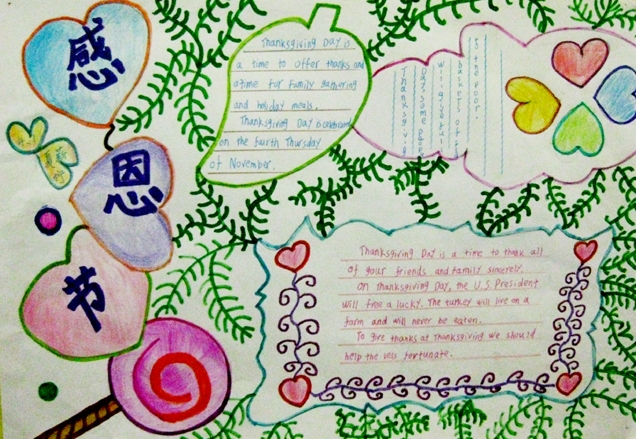 感
恩
节
Thanksgiving Day is
a time to offer thanks and
a time for family gathering
and holiday meals.
Thanksgiving Day is
on the fourth Thursday
of November.
Thanksgiving
Day some people
will give full
baskets of f
s the poor.
Thanksgiving Day is a time to thank all
of your friends and family sincerely.
On thanksgiving Day, the U.S. President
will free a lucky. The turkey will live on a
farm and will never be eaten.
To give thanks at Thanksgiving we should
help the less fortunate.